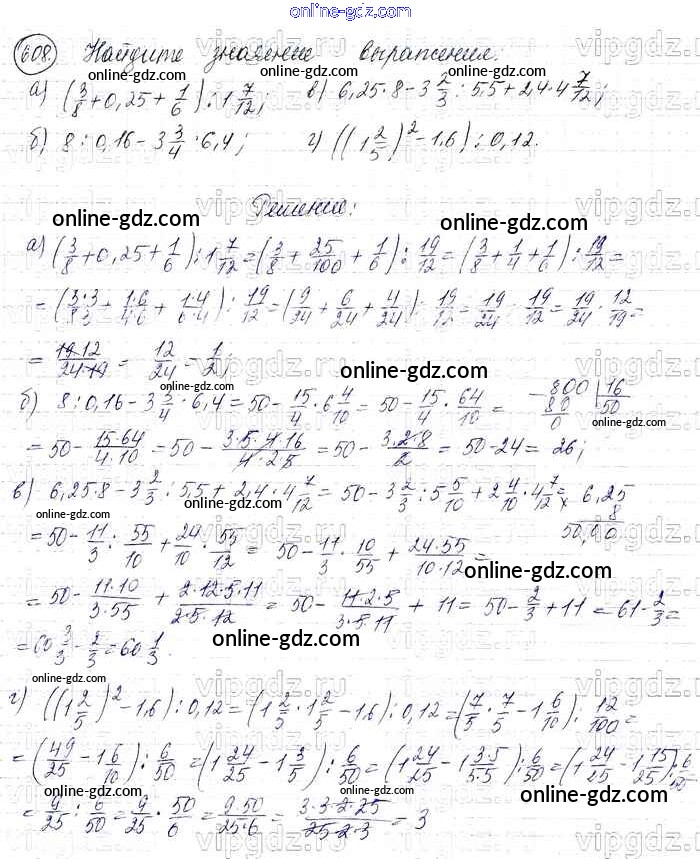 online-gdz.com
608. Найдите значение выражения:
а) (3/8 + 0,25 + 1/6) : 1 7/12; в) 6,25·8 - 3 2/3 : 5,5 + 2,4·4 7/12;
б) 8 : 0,16 - 3 3/4 · 6,4; г) ((1 2/5)² - 1,6) : 0,12.
Решение:
а) (3/8 + 0,25 + 1/6) : 1 7/12 = (3/8 + 25/100 + 1/6) : 19/12 = (3/8 + 1/4 + 1/6) : 19/12 =
= (3·3/8·3 + 1·6/4·6 + 1·4/6·4) : 19/12 = (9/24 + 6/24 + 4/24) : 19/12 = 19/24 : 19/12 = 19/24 · 12/19 =
= 19·12/24·19 = 12/24 = 1/2;
б) 8 : 0,16 - 3 3/4 · 6,4 = 50 - 15/4 · 6 4/10 = 50 - 15/4 · 64/10 = - 800 | 16
80 | 50
0
= 50 - 15·64/4·10 = 50 - 3·5·4·16/4·2·5 = 50 - 3·2·8/2 = 50 - 24 = 26;
в) 6,25·8 - 3 2/3 : 5,5 + 2,4 · 4 7/12 = 50 - 3 2/3 : 5 5/10 + 2 4/10 · 4 7/12 = × 6,25
8
50,00
= 50 - 11/3 : 55/10 + 24/10 · 55/12 = 50 - 11/3 · 10/55 + 24·55/10·12 =
= 50 - 11·10/3·55 + 2·12·5·11/2·5·12 = 50 - 11·2·5/3·5·11 + 11 = 50 - 2/3 + 11 = 61 - 2/3 =
= 60 3/3 - 2/3 = 60 1/3.
г) ((1 2/5)² - 1,6) : 0,12 = (1 2/5 · 1 2/5 - 1,6) : 0,12 = (7/5 · 7/5 - 1 6/10) : 12/100 =
= (49/25 - 1 6/10) : 6/50 = (1 24/25 - 1 3/5) : 6/50 = (1 24/25 - 1 3·5/5·5) : 6/50 = (1 24/25 - 1 15/25) : 6/50 =
= 9/25 : 6/50 = 9/25 · 50/6 = 9·50/25·6 = 3·3·2·25/25·2·3 = 3